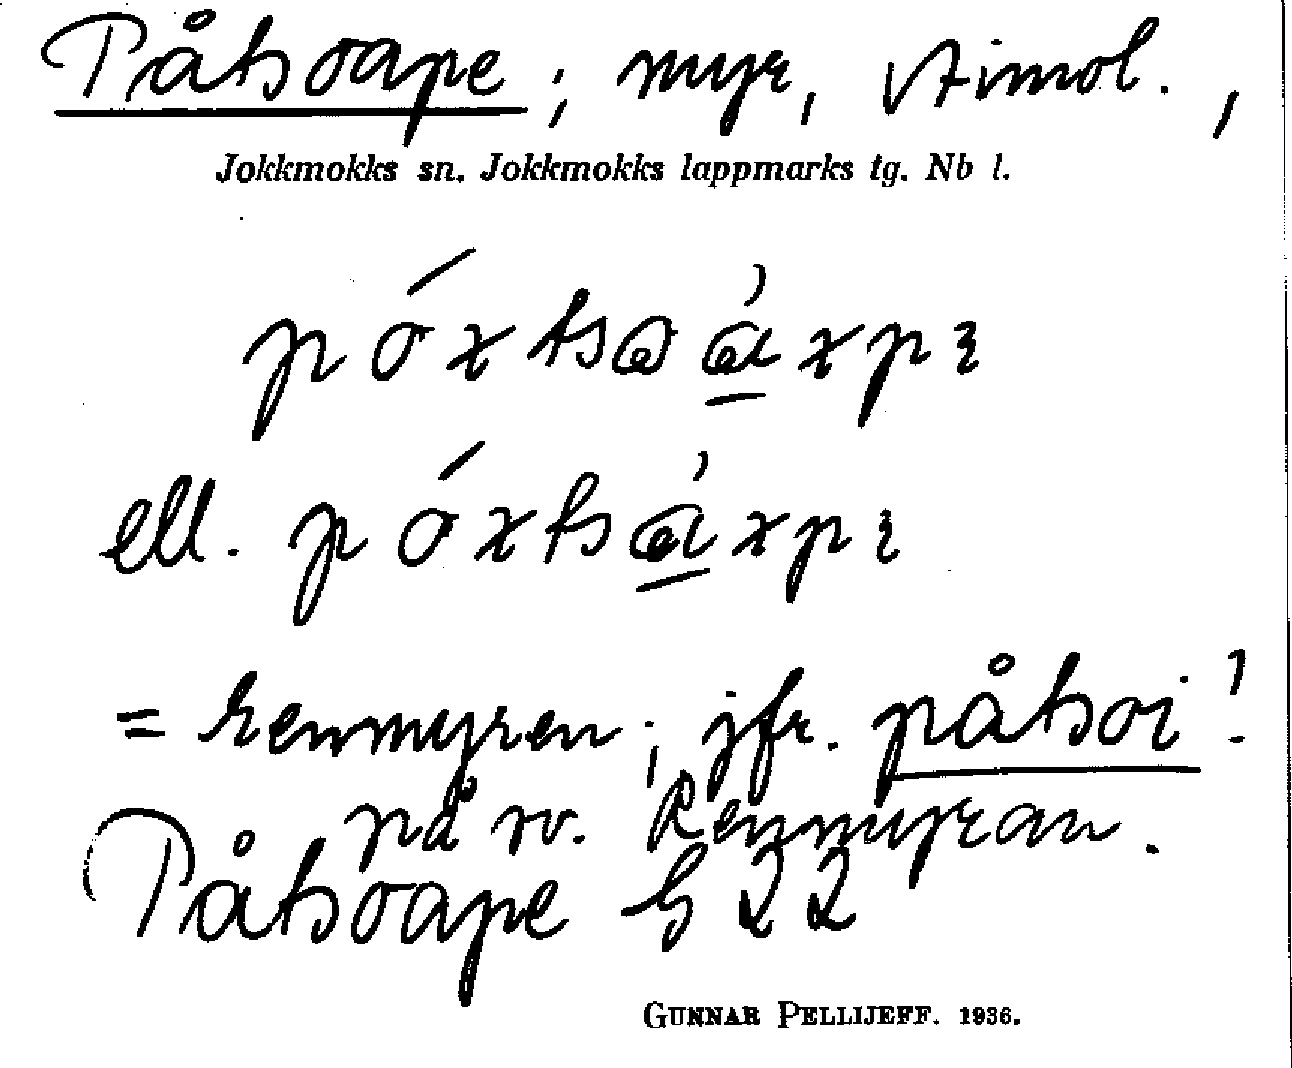 Påtsoape; myr, Stimol.,
Jokkmokks sn. Jokkmokks lappmarks tg. Nb l.
ell.
= renmyren; jfr. påtsoi!
på sv. Renmyran.
Påtsoape G 22
GUNNAR PELLIJEFF. 1936.